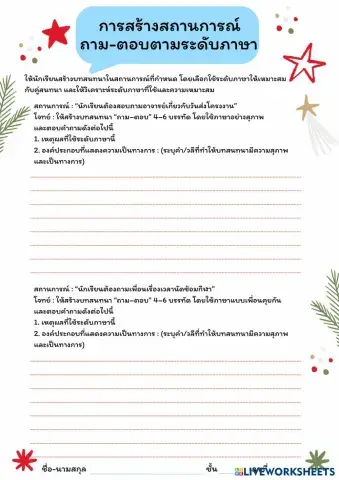 การสร้างสถานการณ์
ถาม-ตอบตามระดับภาษา
ให้นักเรียนสร้างบทสนทนาในสถานการณ์ที่กำหนด โดยเลือกใช้ระดับภาษาให้เหมาะสม
กับคู่สนทนา และให้วิเคราะห์ระดับภาษาที่ใช้และความเหมาะสม
สถานการณ์ : “นักเรียนต้องสอบถามอาจารย์เกี่ยวกับวันส่งโครงงาน”
โจทย์ : ให้สร้างบทสนทนา “ถาม-ตอบ” 4-6 บรรทัด โดยใช้ภาษาอย่างสุภาพ
และตอบคำถามดังต่อไปนี้
1. เหตุผลที่ใช้ระดับภาษานี้
2. องค์ประกอบที่แสดงความเป็นทางการ : (ระบุคำ/วลีที่ทำให้บทสนทนามีความสุภาพ
และเป็นทางการ)
สถานการณ์ : “นักเรียนต้องถามเพื่อนเรื่องเวลานัดซ้อมกีฬา”
โจทย์ : ให้สร้างบทสนทนา “ถาม-ตอบ” 4-6 บรรทัด โดยใช้ภาษาแบบเพื่อนคุยกัน
และตอบคำถามดังต่อไปนี้
1. เหตุผลที่ใช้ระดับภาษานี้
2. องค์ประกอบที่แสดงความเป็นทางการ : (ระบุคำ/วลีที่ทำให้บทสนทนามีความสุภาพ
และเป็นทางการ)
ชื่อ-นามสกุล ชั้น
LIVEWORKSHEETS